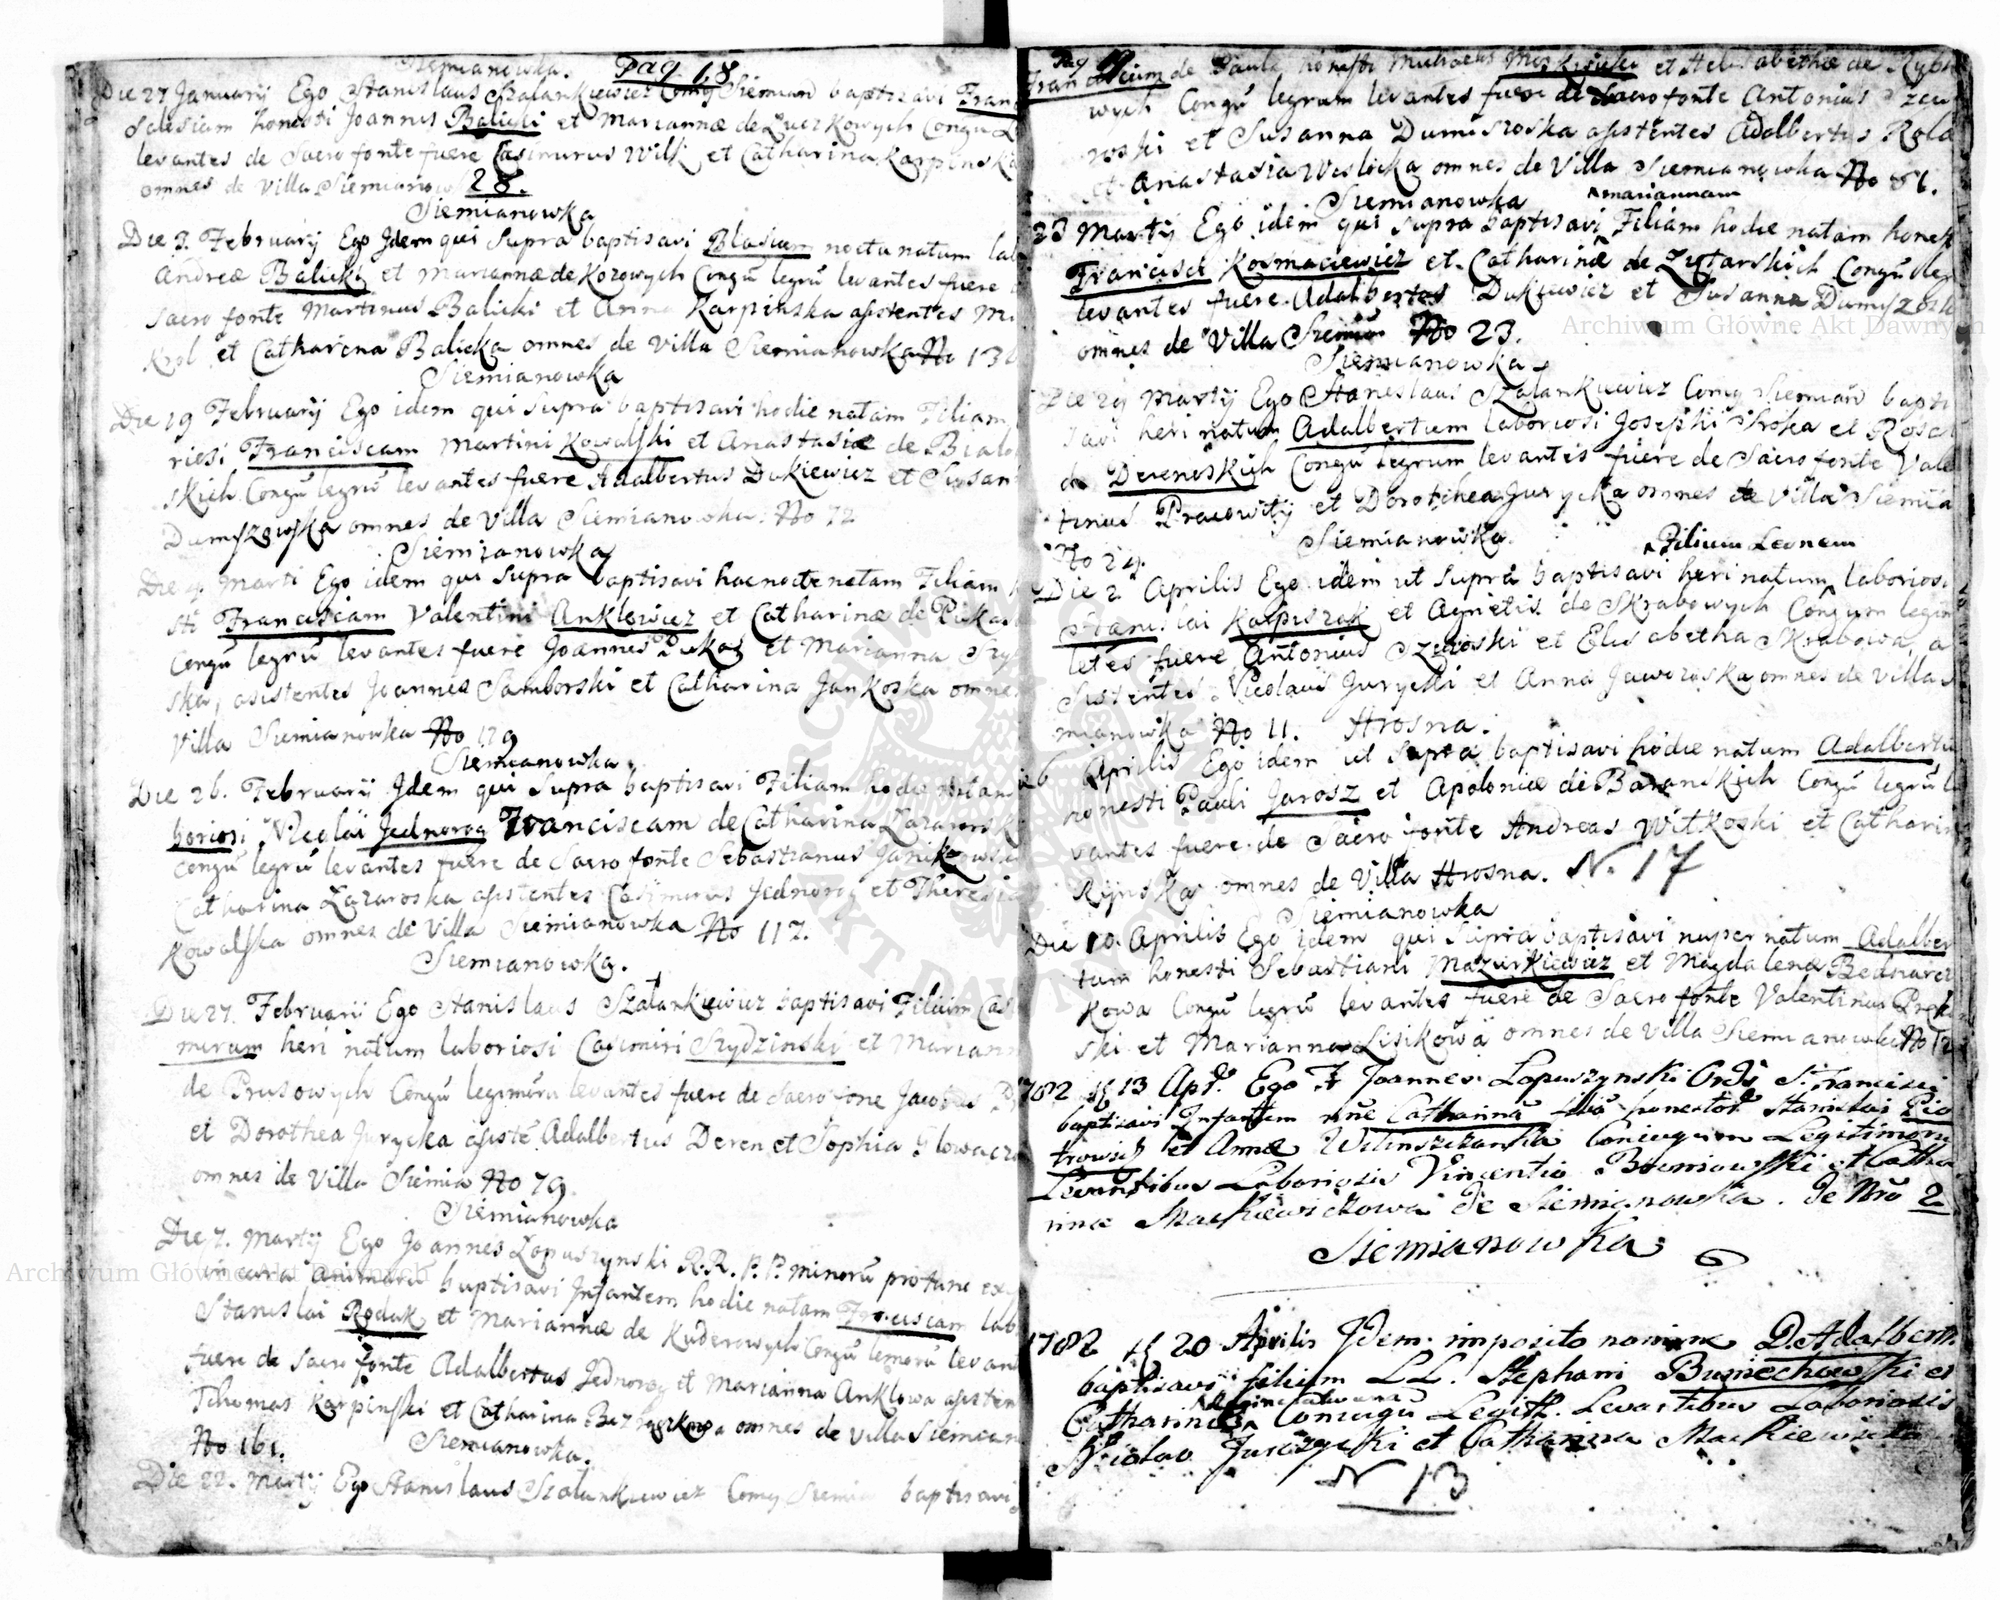 Siemianowka. Pag 18
Die 27 Januarij Ego Stanislaus Szalankiewicz Comg Siemian baptisavi Franc
Salesium honesti Joannis Balicki et Mariannæ de Zuczkowych Congu L
levantes de Sacro fonte fuere Casimirus Wilk et Catharina Karpinska
omnes de Villa Siemianow 28.
Siemianowka
Die 3. February Ego Idem qui Supra baptisavi Blasium noctu natum lab
Andreæ Balicki et Mariannæ de Kozowych Congu legru levantes fuere
Sacro fonte Martinus Balicki et Anna Karpinska asistentes M
Krol et Catharina Balicka omnes de Villa Siemianowka No 13
Siemianowka
Die 19 February Ego idem qui Supra baptisavi hodie natam Filiam
riosi Franciscam Martini Kowalski et Anastasiæ de Bialo
skich Congu legru levantes fuere Adalbertus Dukiewicz et Susan
Dumyszowska omnes de Villa Siemianowka. No 72
Siemianowka
Die 4. Marti Ego idem qui Supra baptisavi hac nocte natam Filiam h
sti Franciscam Valentini Anklewicz et Catharinæ de Pukas
Congu legru levantes fuere Joannes Pukas et Marianna Szy
ska, asistentes Joannes Samborski et Catharina Jankoska omnes
Villa Siemianowka No 179
Siemianowka
Die 26. February Idem qui Supra baptisavi Filiam hodie natam
boriosi Nicolai Jednorog Franciscam de Catharina Lazarowsk
Congu legru levantes fuere de Sacro fonte Sebastianus Janikowski
Catharina Lazaroska asistentes Casimirus Jednorog et Theresia
Kowalska omnes de Villa Siemianowka No 117.
Siemianowka.
Die 27. February Ego Stanislaus Szalankiewicz baptisavi Filium Cas
mirum heri natum laboriosi Casimiri Szydzinski et Mariann
de Prusowych Congu legimoru levantes fuere de Sacro fone Jacobus P
et Dorothea Jurycka asiste Adalbertus Deren et Sophia Glowacz
omnes de Villa Siemia No 79.
Siemianowka
Die 7. Martij Ego Joannes Lopuszynski R.R.P.P. minoru pro tunc ex
in cura animaru baptisavi Infantem hodie natam Franciscam lab
Stanislai Rodak et Mariannæ de Kuderowych Congu lemoru levan
fuere de Sacro fonte Adalbertus Jednorog et Marianna Anklowa asisten
Thomas Karpinski et Catharina omnes de Villa Siemian
No 161.
Siemianowka.
Die 22. Martij Ego Stanislaus Szalankiewicz Comg Siemia baptisavi
Pag 19
Franciscum de Paula honesti Michaelis et Helisabethæ de Rybn
wych Congu legrum levantes fuere de Sacro fonte Antonius Szcu
roski et Susanna Dumiszoska asistentes Adalbertus Rola
et Anastasia Wislocka omnes de Villa Siemianowka No 81.
Siemianowka mariannam
23 Martij Ego idem qui Supra baptisavi Filiam hodie natam honest
Francisci Kosmaciewicz et Catharinæ de Zytarskich Congu leg
levantes fuere Adalbertus Dukiewicz et Susanna Dumyszoska
omnes de Villa Siemian No 23.
Siemianowka
Die 29 Martij Ego Stanislaus Szalankiewicz Comg Siemian bapti
savi heri natum Adalbertum laboriosi Josephi Sroka et Rosa
de Derenoskich Congu legrum levantes fuere de Sacro fonte Vale
tinus Pracowity et Dorothea Jurycka omnes de Villa Siemia
No 29.
Siemianowka Filium Leonem
Die 2 Aprilis Ego idem ut Supra baptisavi heri natum laboriosi
Stanislai Karpiszak et Agnetis de Skrabowych Congum legim
letes fuere Antonius Szcuroski et Elisabetha Skrabowa, a
sistentes Nicolaus Jurycki et Anna Jaworoska omnes de Villa
mianowka No 11. Hrosna.
6 Aprilis Ego idem ut Supra baptisavi hodie natum Adalbertu
honesti Pauli Jarosz et Apoloniæ de Baranskich Congu legru l
vantes fuere de Sacro fonte Andreas Witkoski et Catharin
Rynska omnes de Villa Hrosna. N. 17
Siemianowka
Die 10. Aprilis Ego idem qui Supra baptisavi nuper natum Adalber
tum honesti Sebastiani Mazurkiewicz et Magdalena Bednarcz
kowa Congu legru levantes fuere de Sacro fonte Valentinus Prok
ski et Marianna Lisikowa omnes de Villa Siemianowka No 12
1782 13 Apr. Ego Fr Joannes Lopuszynski Ords S. Francisci
baptisavi Infantem nne Catharina honestor Stanislai Pio
trowski et Annæ Coniugum Legitimoru
Levantibus Laboriosis Vincentio et Catha
rina Mackiewiczowa de Siemianowka. de Nro 2
Siemianowka
1782 20 Aprilis Idem imposito nomine D. Adalberti
baptisavi filium LL. Stephani et
Catharinæ Coniugu Legitt. Levantibus Laboriosis
Nicolao Jurczycki et Catharina Mackiewicz
N 13
Archiwum Główne Akt Dawnych
Archiwum Główne Akt Dawnych
ARCHIWUM GŁÓWNE AKT DAWNYCH